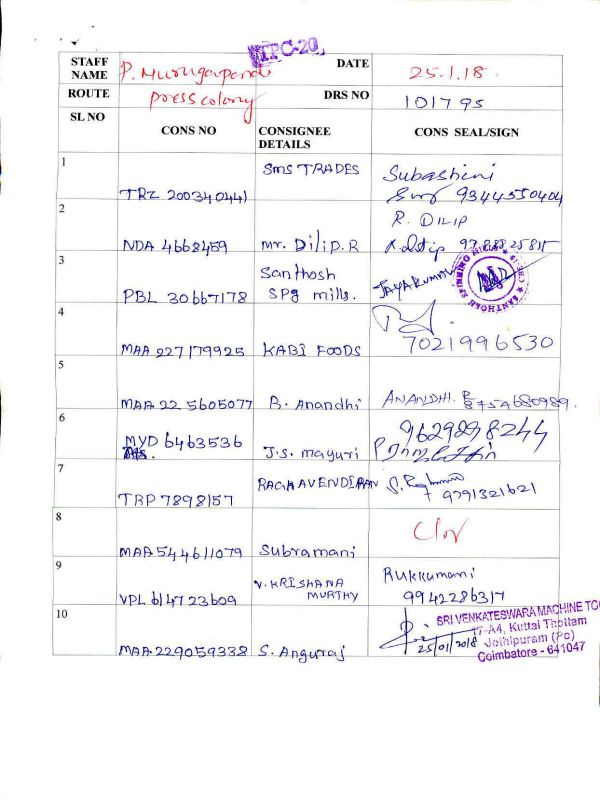 TPC-20
STAFF NAME P. Murugapandi DATE 25.1.18.
ROUTE Press colony DRS NO 101795
SL NO CONS NO CONSIGNEE DETAILS CONS SEAL/SIGN
1 TRZ 200340441 SMS TRADES Subashini
9344550404
2 NDA 4668459 Mr. Dilip.R R. DILIP
3 PBL 30667178 Santhosh Spg mills. JAYAKUMAR
SANTHOSH SPINNING MILLS
4 MAA 227179925 KABI FOODS 7021996530
5 MAA 22 5605077 B. Anandhi ANANDHI. B
8754680989.
6 MYD 6463536 J.S. Mayuri 9629898244
7 TRP 7898157 RAGHAVENDIRAN
9791321621
8 MAA 544611079 Subramani
9 VPL 614723609 V. KRISHANA MURTHY Rukkumani
9942286317
10 MAA 229059338 S. Anguraj 25/01/2018
SRI VENKATESWARA MACHINE TO
17-A4, Kuttai Thottam
Jothipuram (Po)
Coimbatore - 641047